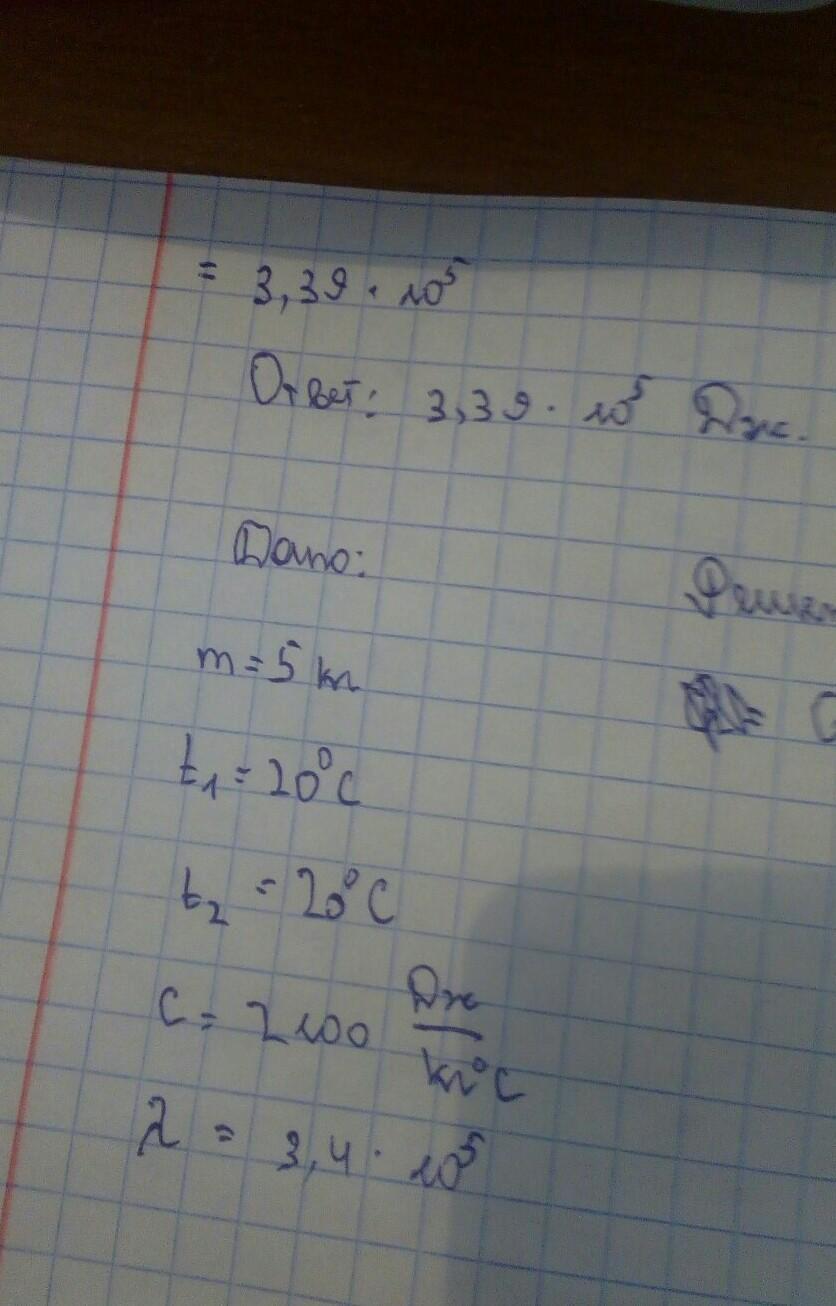 = 3,39 · 10⁵
Ответ: 3,39 · 10⁵ Дж.
Дано:
m = 5 кг
t₁ = 20°C
t₂ = 20°C
c = 2100 Дж/кг°C
λ = 3,4 · 10⁵